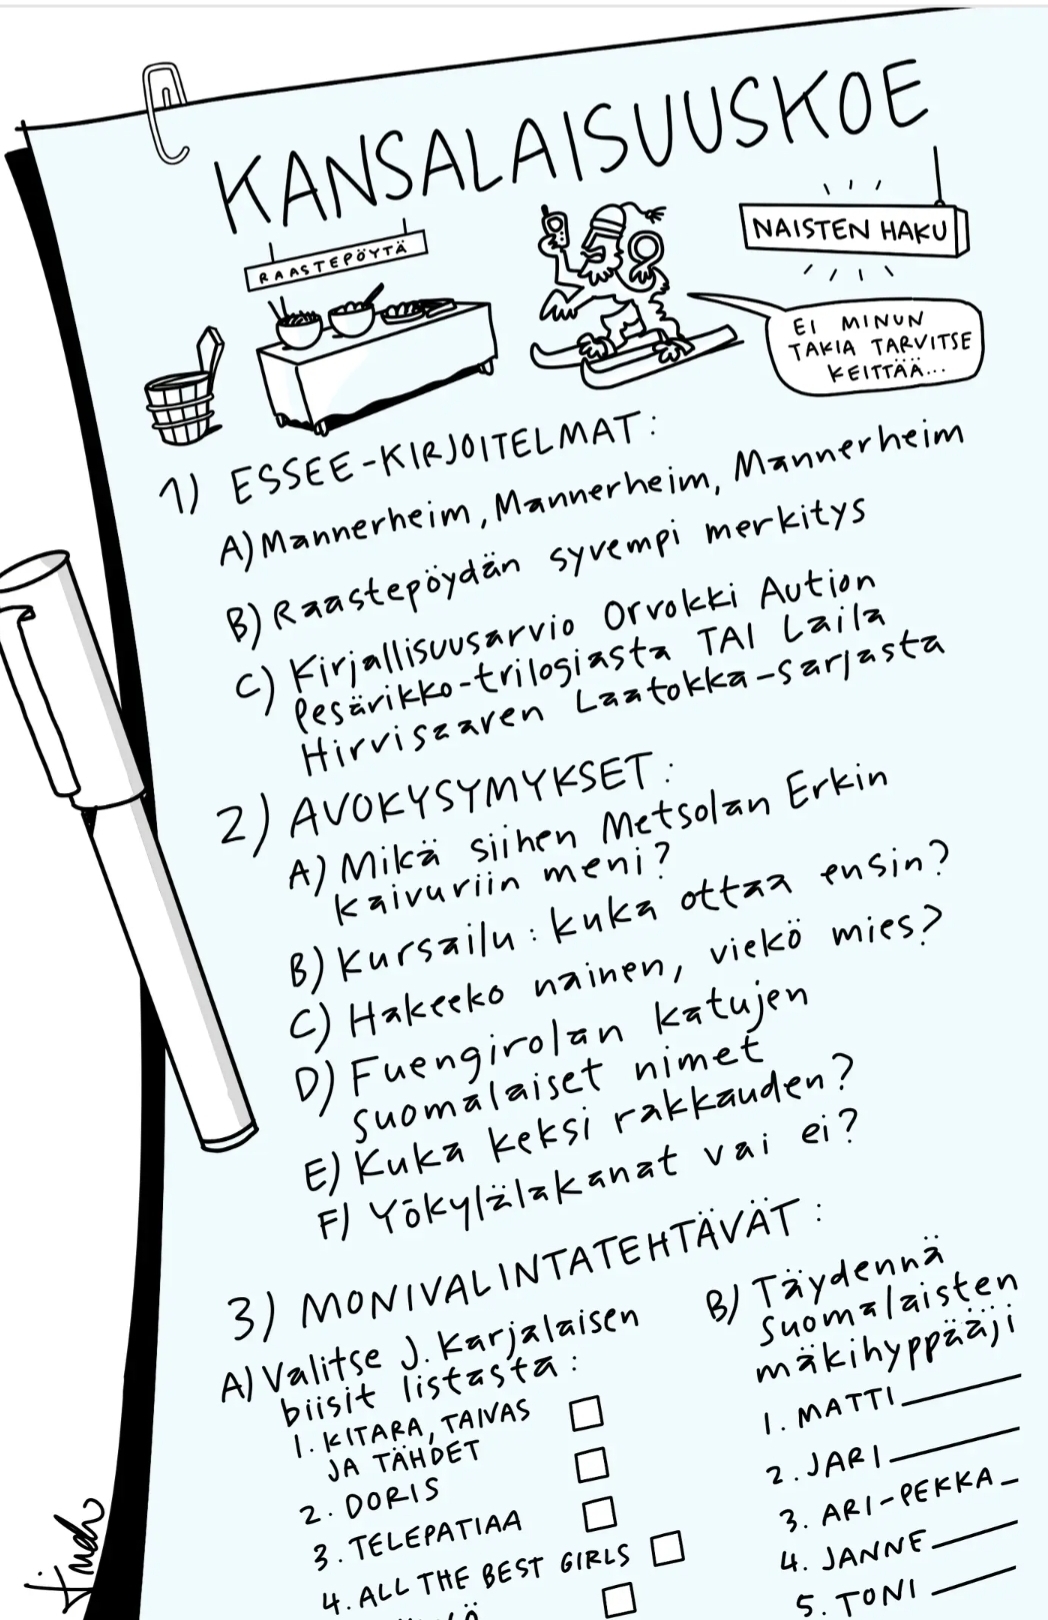 KANSALAISUUSKOE
RAASTEPÖYTÄ
NAISTEN HAKU
EI MINUN
TAKIA TARVITSE
KEITTÄÄ...
1) ESSEE-KIRJOITELMAT:
A) Mannerheim, Mannerheim, Mannerheim
B) Raastepöydän syvempi merkitys
C) Kirjallisuusarvio Orvokki Aution
Pesärikko-trilogiasta TAI Laila
Hirvisaaren Laatokka-sarjasta
2) AVOKYSYMYKSET:
A) Mikä siihen Metsolan Erkin
kaivuriin meni?
B) Kursailu: kuka ottaa ensin?
C) Hakeeko nainen, viekö mies?
D) Fuengirolan katujen
suomalaiset nimet
E) Kuka keksi rakkauden?
F) Yökylälakanat vai ei?
3) MONIVALINTATEHTÄVÄT:
A) Valitse J. Karjalaisen
biisit listasta:
1. KITARA, TAIVAS
JA TÄHDET
2. DORIS
3. TELEPATIAA
4. ALL THE BEST GIRLS
B) Täydennä
Suomalaisten
mäkihyppääji
1. MATTI
2. JARI
3. ARI-PEKKA
4. JANNE
5. TONI